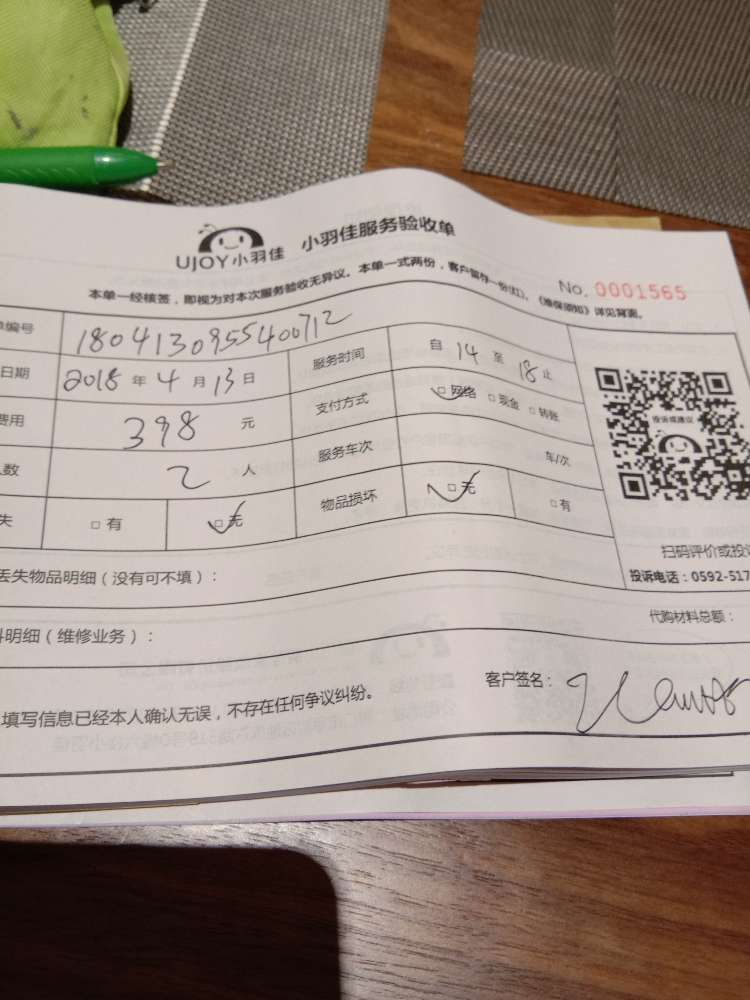 UJOY小羽佳 小羽佳服务验收单
本单一经核签，即视为对本次服务验收无异议。本单一式两份，客户留存一份(红)。《维保须知》详见背面。
No. 0001565
单编号 1804130955400712
日期 2018 年 4 月 13 日 服务时间 自 14 至 18 止
费用 398 元 支付方式 □网络 □现金 □转账
人数 2 人 服务车次 车/次
失 □有 □无 物品损坏 □无 □有
投诉或建议
扫码评价或投诉
丢失物品明细（没有可不填）：
投诉电话：0592-517
料明细（维修业务）： 代购材料总额：
填写信息已经本人确认无误，不存在任何争议纠纷。 客户签名：